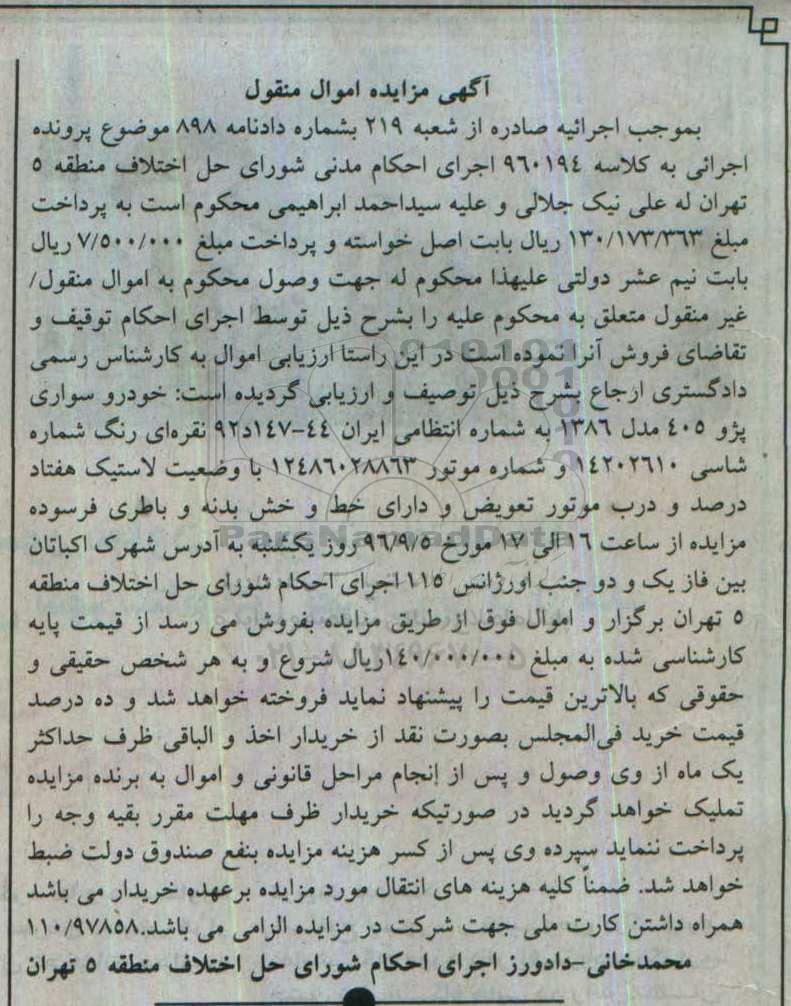 آگهی مزایده اموال منقول
بموجب اجرائیه صادره از شعبه ۲۱۹ بشماره دادنامه ۸۹۸ موضوع پرونده
اجرائی به کلاسه ۹۶۰۱۹۴ اجرای احکام مدنی شورای حل اختلاف منطقه ۵
تهران له علی نیک جلالی و علیه سیداحمد ابراهیمی محکوم است به پرداخت
مبلغ ۱۳۰/۱۷۳/۳۶۳ ریال بابت اصل خواسته و پرداخت مبلغ ۷/۵۰۰/۰۰۰ ریال
بابت نیم عشر دولتی علیهذا محکوم له جهت وصول محکوم به اموال منقول/
غیر منقول متعلق به محکوم علیه را بشرح ذیل توسط اجرای احکام توقیف و
تقاضای فروش آنرا نموده است در این راستا ارزیابی اموال به کارشناس رسمی
دادگستری ارجاع بشرح ذیل توصیف و ارزیابی گردیده است: خودرو سواری
پژو ۴۰۵ مدل ۱۳۸۶ به شماره انتظامی ایران ۴۴-۱۴۷د۹۲ نقره‌ای رنگ شماره
شاسی ۱۴۲۰۲۶۱۰ و شماره موتور ۱۲۴۸۶۰۲۸۸۶۳ با وضعیت لاستیک هفتاد
درصد و درب موتور تعویض و دارای خط و خش بدنه و باطری فرسوده
مزایده از ساعت ۱۶ الی ۱۷ مورخ ۹۶/۹/۵ روز یکشنبه به آدرس شهرک اکباتان
بین فاز یک و دو جنب اورژانس ۱۱۵ اجرای احکام شورای حل اختلاف منطقه
۵ تهران برگزار و اموال فوق از طریق مزایده بفروش می رسد از قیمت پایه
کارشناسی شده به مبلغ ۱۴۰/۰۰۰/۰۰۰ریال شروع و به هر شخص حقیقی و
حقوقی که بالاترین قیمت را پیشنهاد نماید فروخته خواهد شد و ده درصد
قیمت خرید فی‌المجلس بصورت نقد از خریدار اخذ و الباقی ظرف حداکثر
یک ماه از وی وصول و پس از انجام مراحل قانونی و اموال به برنده مزایده
تملیک خواهد گردید در صورتیکه خریدار ظرف مهلت مقرر بقیه وجه را
پرداخت ننماید سپرده وی پس از کسر هزینه مزایده بنفع صندوق دولت ضبط
خواهد شد. ضمناً کلیه هزینه های انتقال مورد مزایده برعهده خریدار می باشد
همراه داشتن کارت ملی جهت شرکت در مزایده الزامی می باشد.۱۱۰/۹۷۸۵۸
محمدخانی-دادورز اجرای احکام شورای حل اختلاف منطقه ۵ تهران
ParsNamadData